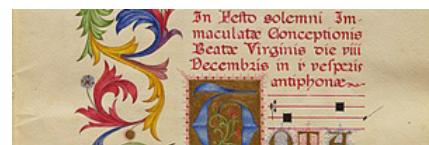 In Festo solemni Im-
maculatæ Conceptionis
Beatæ Virginis die viii
Decembris in iis vesperis
antiphonæ
TOTA